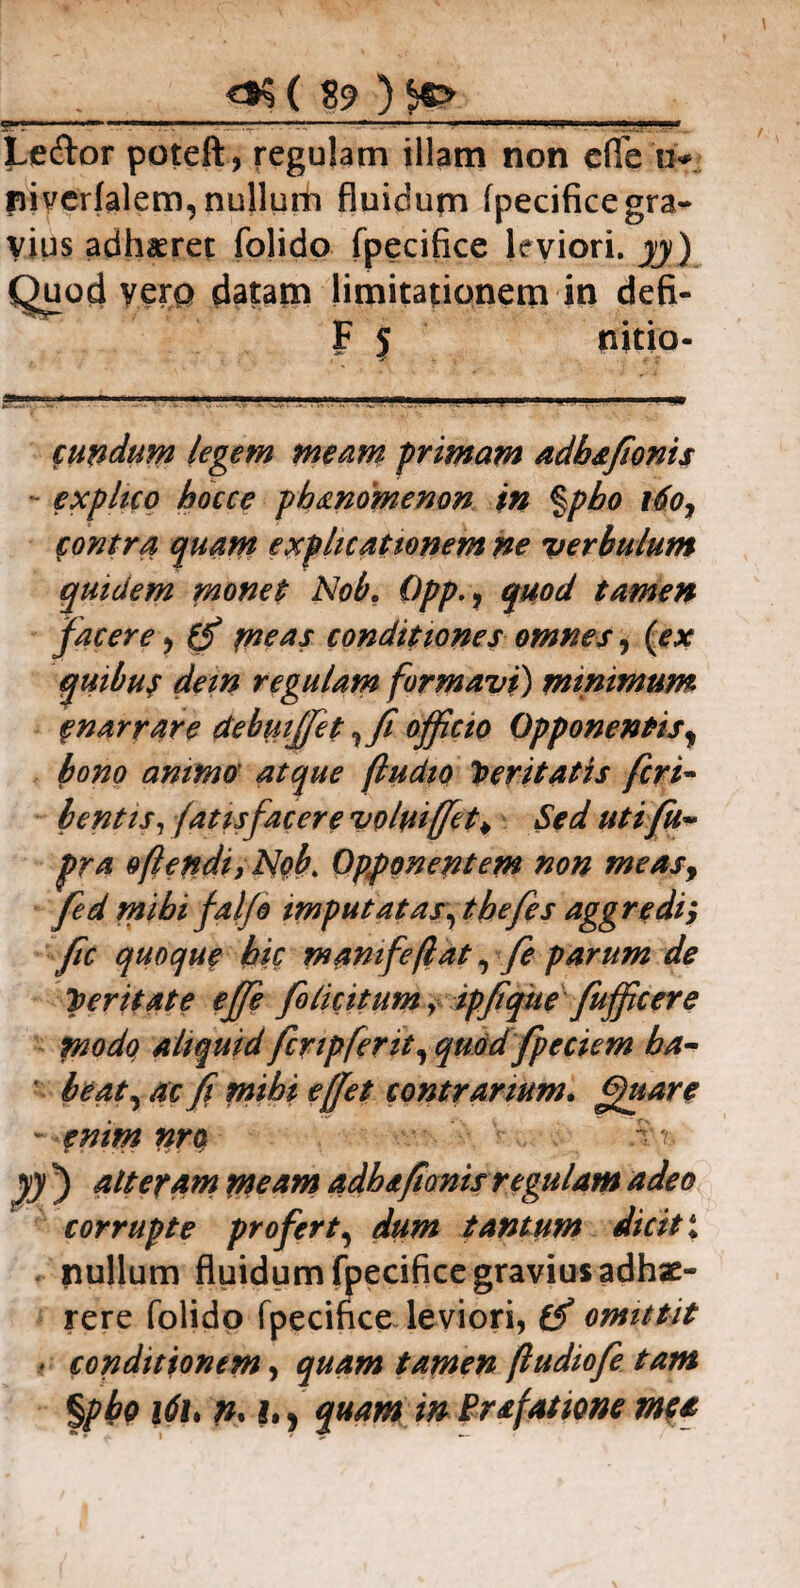 ( 89 )
Lector poteſt, regulam illam non eſſe u-
niverſalem, nullum fluidum ſpecifice gra-
vius adhæret ſolido ſpecifice leviori. yy)
Quod vero datam limitationem in defi-
F 5 nitio-
cundum legem meam primam adhæſionis
explico hocce phænomenon in §pho 160,
contra quam explicationem ne verbulum
quidem monet Nob. Opp., quod tamen
facere, & meas conditiones omnes, (ex
quibus dein regulam formavi) minimum
enarrare debuiſſet, ſi officio Opponentis,
bono animo atque ſtudio veritatis ſcri-
bentis, ſatisfacere voluiſſet. Sed uti ſu-
pra oſtendi, Nob. Opponentem non meas,
ſed mihi falſo imputatas, theſes aggredi;
ſic quoque hic manifeſtat, ſe parum de
veritate eſſe ſolicitum, ipſique ſufficere
modo aliquid ſcripſerit, quod ſpeciem ha-
beat, ac ſi mihi eſſet contrarium. Quare
enim nro
yy) alteram meam adhæſionis regulam adeo
corrupte profert, dum tantum dicit:
nullum fluidum ſpecifice gravius adhæ-
rere ſolido ſpecifice leviori, & omittit
conditionem, quam tamen ſtudioſe tam
§pho 161. n. 1., quam in Præfatione meæ